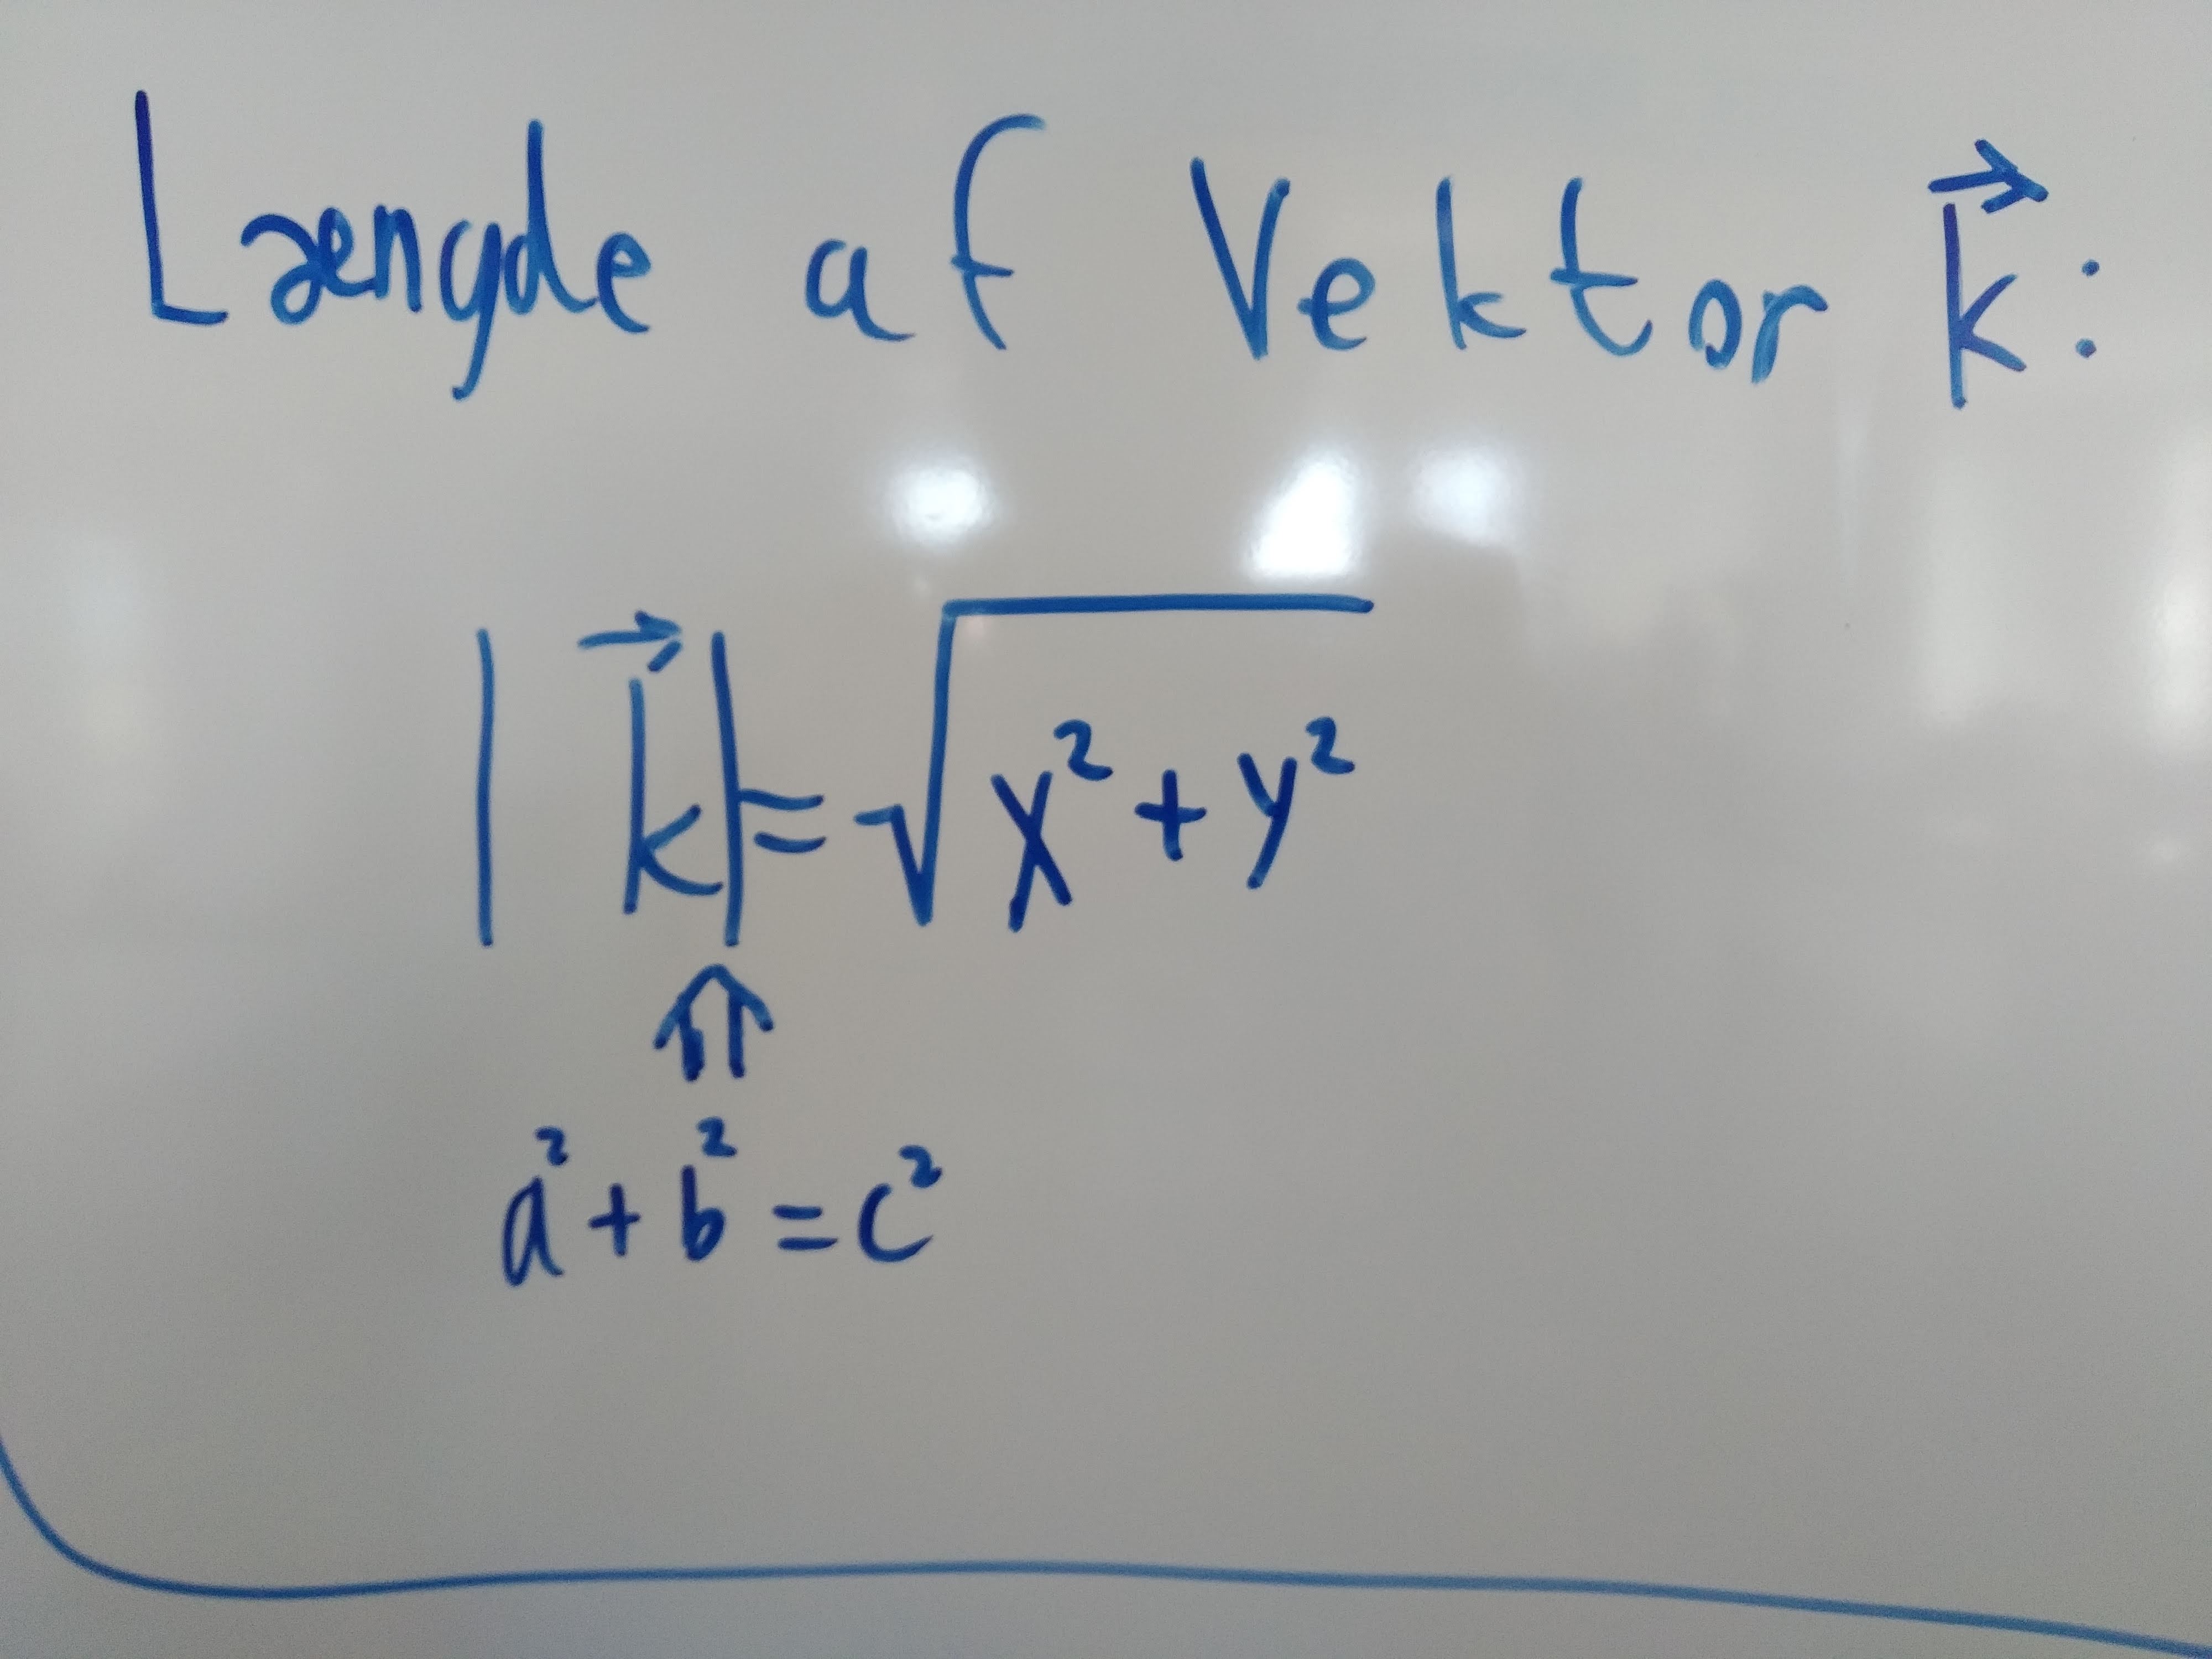 Længde af Vektor k⃗:
|k⃗| = √(x² + y²)
⇑
a² + b² = c²